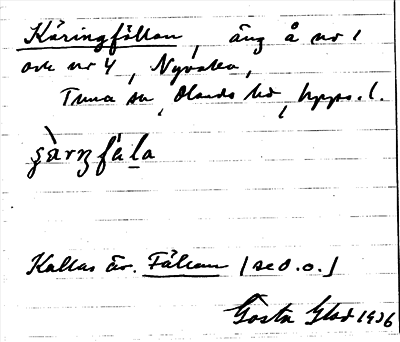 Käringfällan, äng å nr 1
och nr 4, Nyvalla,
Tuna sn, Olands hd, Upps. l.
Kallas äv. Fällan [se d. o.]
Gösta Glad 1936